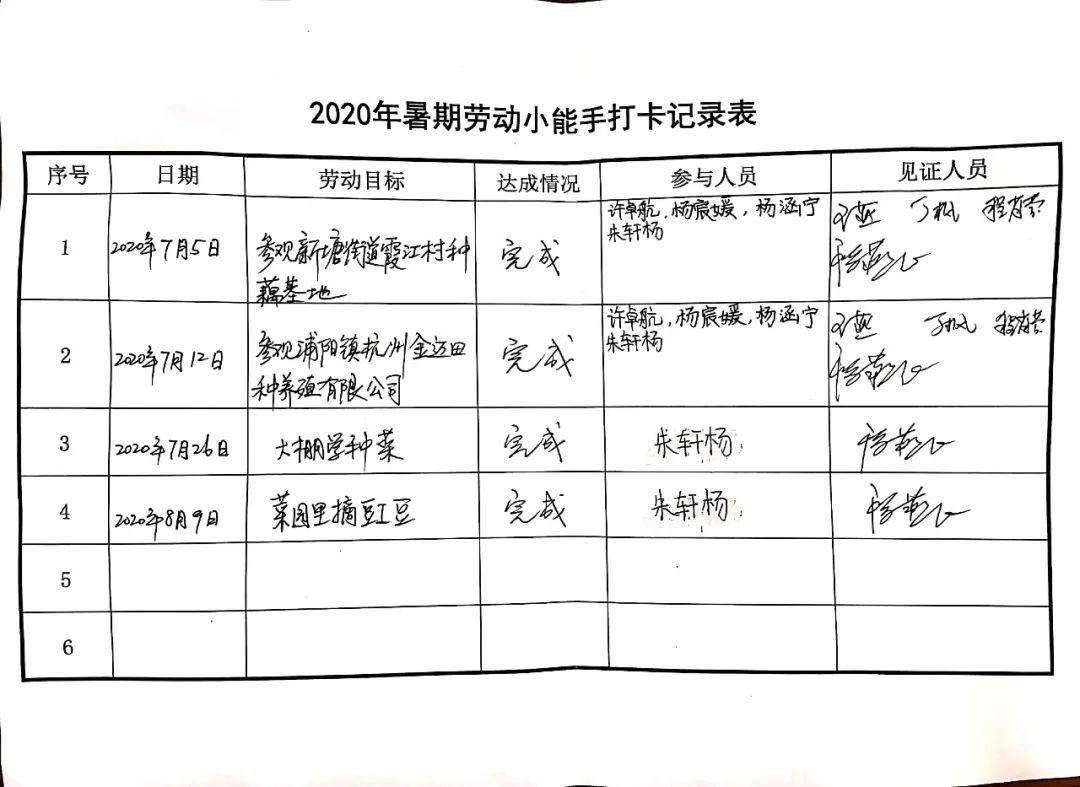 2020年暑期劳动小能手打卡记录表
序号 日期 劳动目标 达成情况 参与人员 见证人员
1 2020年7月5日 参观新塘街道霞江村种 完成 许卓航,杨宸媛,杨涵宁
藕基地 朱轩杨
2 2020年7月12日 参观浦阳镇杭州金迈田 完成 许卓航,杨宸媛,杨涵宁
种养殖有限公司 朱轩杨
3 2020年7月26日 大棚学种菜 完成 朱轩杨
4 2020年8月9日 菜园里摘豇豆 完成 朱轩杨
5
6